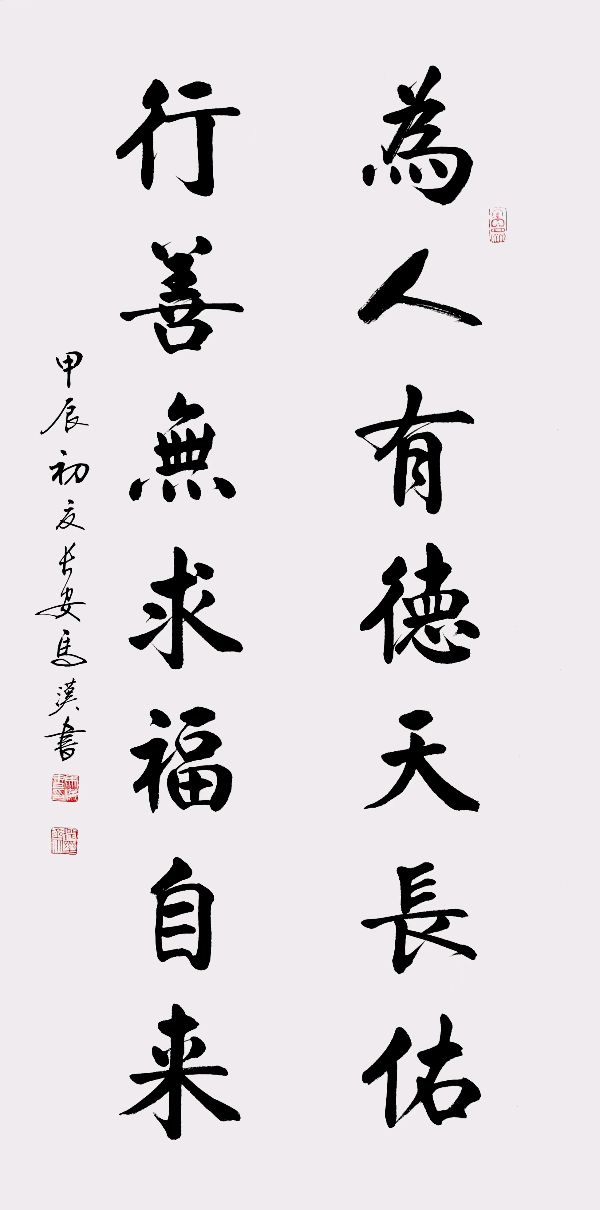 為人有德天長佑
行善無求福自来
甲辰初夏长安馬漢書